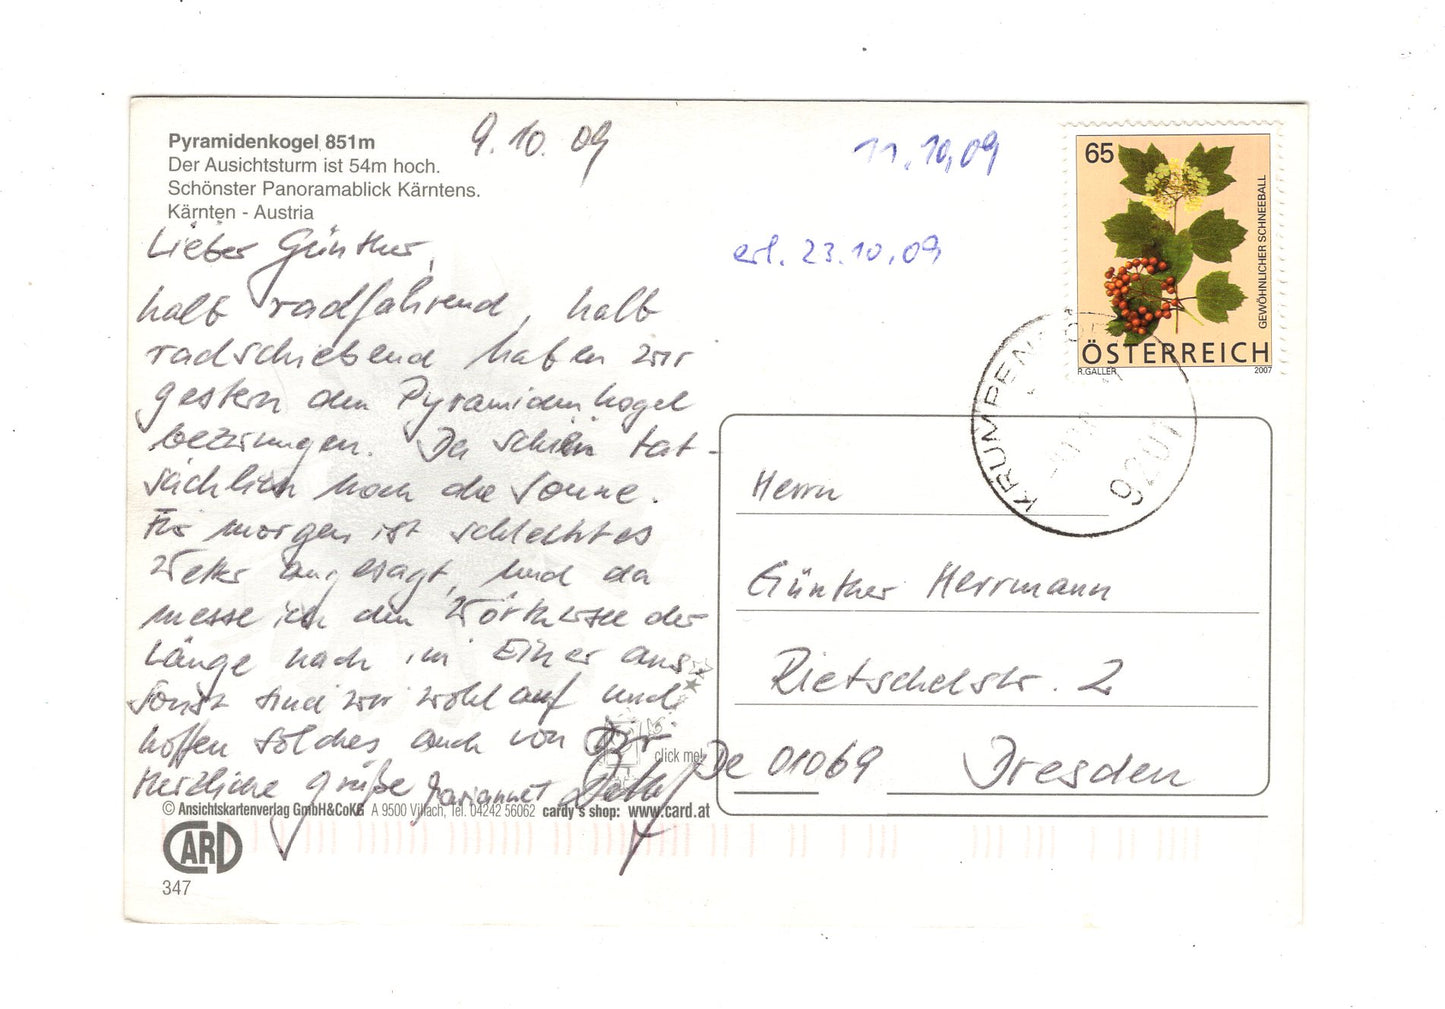 Pyramidenkogel 851m
Der Ausichtsturm ist 54m hoch.
Schönster Panoramablick Kärntens.
Kärnten - Austria
9.10.09
Lieber Günther,
halb radfahrend, halb
radschiebend haben wir
gestern den Pyramidenkogel
bezwungen. Da schien tat-
sächlich noch die Sonne.
Für morgen ist schlechtes
Wetter angesagt, und da
messe ich den Wörthersee der
Länge nach im Einer aus.
Sonst sind wir wohlauf und
hoffen solches auch von Dir
Herzliche Grüße
click me!
© Ansichtskartenverlag GmbH&CoKG A 9500 Villach, Tel. 04242 56062 cardy's shop: www.card.at
CARD
347
11.10.09
erl. 23.10.09
65
GEWÖHNLICHER SCHNEEBALL
ÖSTERREICH
R.GALLER 2007
KRUMPEN
9201
Herrn
Günther Herrmann
Rietschelstr. 2
De 01069 Dresden